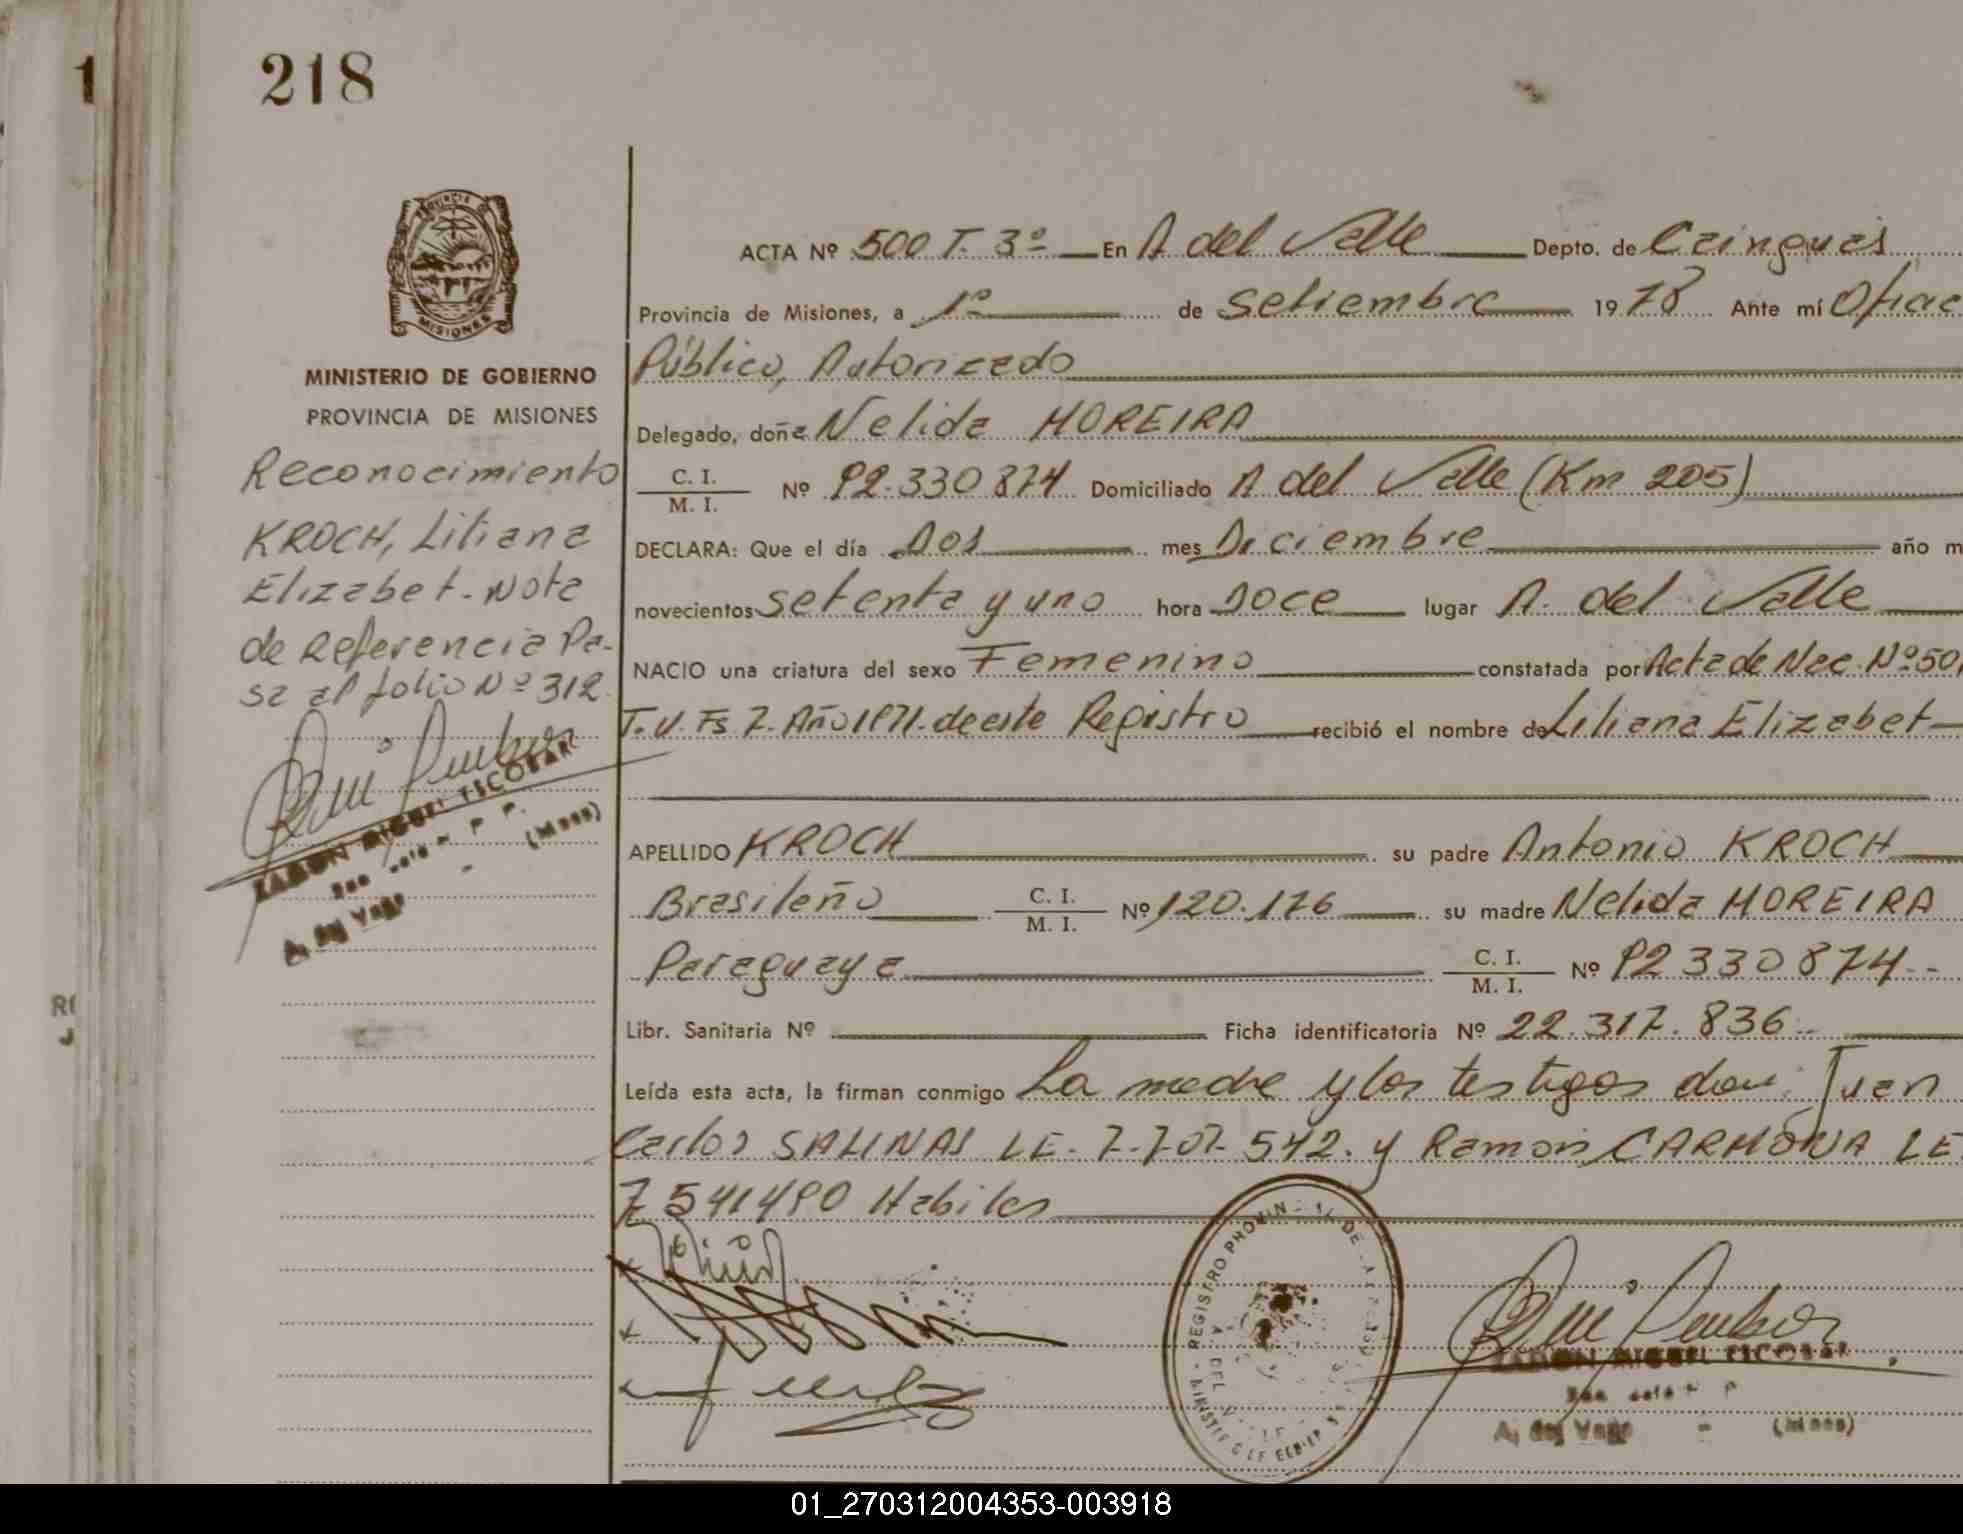 1
218
PROVINCIA DE
MISIONES
MINISTERIO DE GOBIERNO
PROVINCIA DE MISIONES
Reconocimiento
KROCH, Liliana
Elizabet. Nota
de Referencia Pa-
sa al folio Nº 312
RAMON MIGUEL ESCOBAR
(Mnes)
ACTA Nº 500 T. 3º En A del Valle Depto. de Cainguas
Provincia de Misiones, a 1º de Setiembre 1978 Ante mí Ofiac
Público, Autorizado
Delegado, doña Nelida MOREIRA
C. I.
M. I. Nº 92.330874 Domiciliado A del Valle (Km 205)
DECLARA: Que el día Dos mes Diciembre año m
novecientos setenta y uno hora Doce lugar A. del Valle
NACIO una criatura del sexo Femenino constatada por Acta de Nac. Nº 50
T. V. Fs 7. Año 1971. de este Registro recibió el nombre de Liliana Elizabet
APELLIDO KROCH su padre Antonio KROCH
Brasileño C. I.
M. I. Nº 120.176 su madre Nelida MOREIRA
Paraguaya C. I.
M. I. Nº 92330874
Libr. Sanitaria Nº Ficha identificatoria Nº 22.317.836
Leída esta acta, la firman conmigo La madre y los testigos don: Juan
Carlos SALINAS LE. 7.707.542. y Ramón CARMONA LE.
7541490 Habiles
REGISTRO PROVIN
A. DEL
RAMON MIGUEL ESCOBAR
(Mnes)
01_270312004353-003918